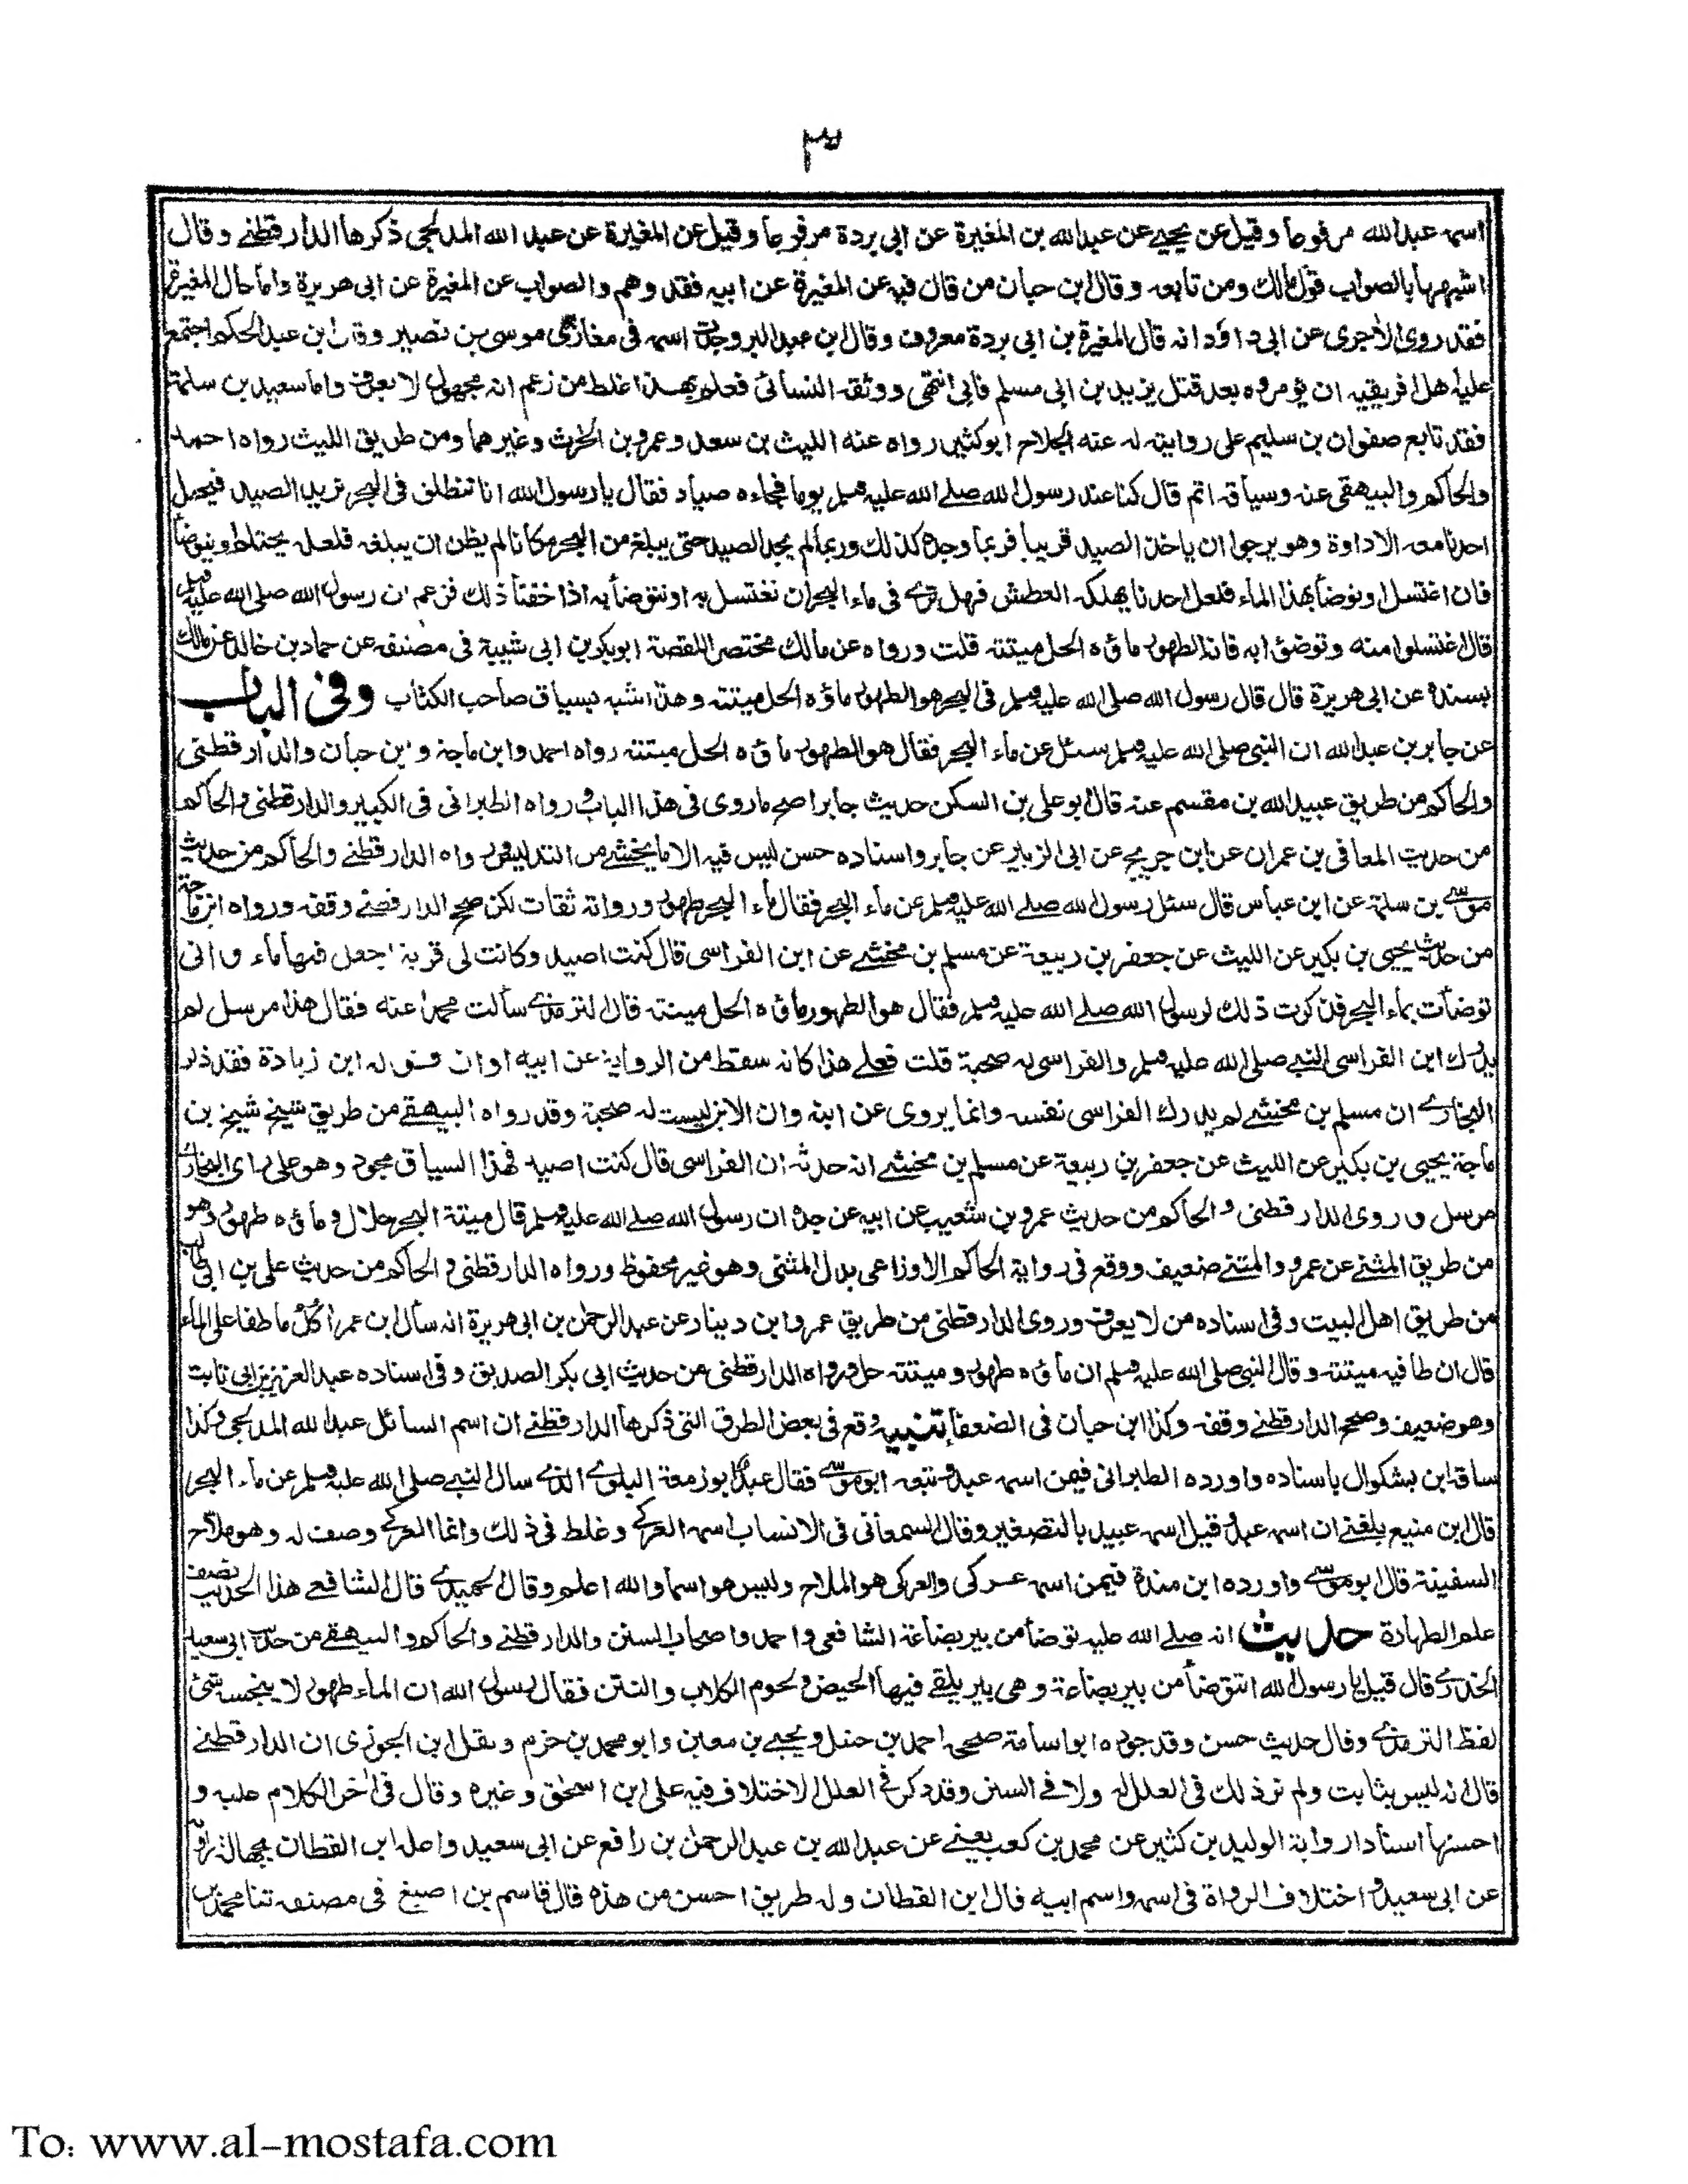 ٣
اسمه عبدالله مرفوعا وقيل عن يحيى عن عبدالله بن المغيرة عن ابى بردة مرفوعا وقيل عن المغيرة عن عبد الله المدلجى ذكرها الدارقطنى وقال
اشبهها بالصواب قول مالك ومن تابعه وقال ابن حبان من قال فيه عن المغيرة عن ابيه فقد وهم والصواب عن المغيرة عن ابى هريرة واما حال المغيرة
فقد روى الاجرى عن ابى داؤد انه قال المغيرة بن ابى بردة معروف وقال ابن عبد البر وجدت اسمه فى مغازى موسى بن نصير وقال ابن عبد الحكم اجتمع
عليه اهل افريقية ان يؤمروه بعد قتل يزيد بن ابى مسلم فابى انتهى ووثقه النسائى فعلم بهذا غلط من زعم انه مجهول لا يعرف واما سعيد بن سلمة
فقد تابع صفوان بن سليم على روايته له عنه الجلاح ابو كثير رواه عنه الليث بن سعد وعمرو بن الحرث وغيرهما ومن طريق الليث رواه احمد
والحاكم والبيهقى عنه وسياقه اتم قال كنا عند رسول الله صلے الله عليه وسلم يوما فجاءه صياد فقال يا رسول الله انا ننطلق فى البحر نريد الصيد فيحمل
احدنا معه الاداوة وهو يرجوا ان ياخذ الصيد قريبا فربما وجده كذلك وربما لم يجد الصيد حتى يبلغ من البحر مكانا لم يظن ان يبلغه فلعله يحتلم او يتوضأ
فان اغتسل او توضأ بهذا الماء فلعل احدنا يهلكه العطش فهل ترى فى ماء البحر ان نغتسل به او نتوضأ به اذا خفنا ذلك فزعم ان رسول الله صلى الله عليه وسلم
قال اغتسلوا منه وتوضؤا به فانه الطهور ماؤه الحل ميتته قلت ورواه عن مالك مختصر القصة ابو بكر بن ابى شيبة فى مصنفه عن حماد بن خالد عن مالك
بسنده عن ابى هريرة قال قال رسول الله صلى الله عليه وسلم فى البحر هو الطهور ماؤه الحل ميتته وهذا اشبه بسياق صاحب الكتاب وفى الباب
عن جابر بن عبد الله ان النبى صلى الله عليه وسلم سئل عن ماء البحر فقال هو الطهور ماؤه الحل ميتته رواه احمد وابن ماجة وابن حبان والدارقطنى
والحاكم من طريق عبيد الله بن مقسم عنه قال ابو على بن السكن حديث جابر اصح ما روى فى هذا الباب ورواه الطبرانى فى الكبير والدارقطنى والحاكم
من حديث المعافى بن عمران عن ابن جريج عن ابى الزبير عن جابر واسناده حسن ليس فيه الا ما يخشى من التدليس ورواه الدارقطنے والحاكم من حديث
موسى بن سلمة عن ابن عباس قال سئل رسول الله صلے الله عليه وسلم عن ماء البحر فقال ماء البحر طهور ورواته ثقات لكن صحح الدارقطنے وقفه ورواه ابن ماجة
من حديث يحيى بن بكير عن الليث عن جعفر بن ربيعة عن مسلم بن مخشى عن ابن الفراسى قال كنت اصيد وكانت لى قربة اجعل فيها ماء وانى
توضأت بماء البحر فذكرت ذلك لرسول الله صلے الله عليه وسلم فقال هو الطهور ماؤه الحل ميتته قال الترمذى سألت محمدا عنه فقال هذا مرسل لم
يدرك ابن الفراسى النبى صلى الله عليه وسلم والفراسى له صحبة قلت فعلى هذا كانه سقط من الرواية عن ابيه او ان قوله ابن زيادة فقد ذكر
البخارے ان مسلم بن مخشى لم يدرك الفراسى نفسه وانما يروى عن ابنه وان الابن ليست له صحبة وقد رواه البيهقے من طريق شيخ شيخ بن
ماجة يحيى بن بكير عن الليث عن جعفر بن ربيعة عن مسلم بن مخشى انه حدثه ان الفراسى قال كنت اصيد فهذا السياق مجود وهو على راى البخارى
مرسل وروى الدارقطنى والحاكم من حديث عمرو بن شعيب عن ابيه عن جده ان رسول الله صلے الله عليه وسلم قال ميتة البحر حلال وماؤه طهور وهو
من طريق المثنى عن عمرو والمثنى ضعيف ووقع فى رواية الحاكم الاوزاعى بدل المثنى وهو غير محفوظ ورواه الدارقطنى والحاكم من حديث على بن ابى طالب
من طريق اهل البيت وفى اسناده من لا يعرف وروى الدارقطنى من طريق عمرو ابن دينار عن عبد الرحمن بن ابى هريرة انه سأل ابن عمر اكل ما طفا على الماء
قال ان طافيه ميتته وقال النبى صلى الله عليه وسلم ان ماؤه طهور وميتته حل ورواه الدارقطنى من حديث ابى بكر الصديق وفى اسناده عبد العزيز بن ابى ثابت
وهو ضعيف وصحح الدارقطنے وقفه وكذا ابن حبان فى الضعفا تنبيه وقع فى بعض الطرق التى ذكرها الدارقطنے ان اسم السائل عبد الله المدلجى وكذا
ساقه ابن بشكوال باسناده واورده الطبرانى فيمن اسمه عبد وتبعه ابو موسى فقال عبد ابو زمعة البلوى الذى سال النبى صلى الله عليه وسلم عن ماء البحر
قال ابن منيع بلغنے ان اسمه عبد وقيل اسمه عبيد بالتصغير وقال السمعانى فى الانساب اسمه العركى وغلط فى ذلك وانما العركى وصف له وهو ملاح
السفينة قال ابو موسى واورده ابن مندة فيمن اسمه عركى والعركى هو الملاح وليس هو اسما والله اعلم وقال الحميدى قال الشافعے هذا الحديث نصف
علم الطهارة حديث انه صلے الله عليه توضأ من بير بضاعة الشافعى واحمد واصحاب السنن والدارقطنے والحاكم والبيهقے من حديث ابى سعيد
الخدرى قال قيل يا رسول الله اتتوضأ من بير بضاعة وهى بير يلقے فيها الحيض ولحوم الكلاب والنتن فقال رسول الله ان الماء طهور لا ينجسه شئ
لفظ الترمذى وقال حديث حسن وقد جوده ابو اسامة صححه احمد بن حنبل ويحيى بن معين وابو محمد بن حزم ونقل ابن الجوزى ان الدارقطنے
قال انه ليس بثابت ولم نر ذلك فى العلل له ولا فے السنن وقد ذكر فے العلل الاختلاف فيه على ابن اسحٰق وغيره وقال فى اٰخر الكلام عليه و
احسنها اسنادا رواية الوليد بن كثير عن محمد بن كعب يعنے عن عبد الله بن عبد الرحمن بن رافع عن ابى سعيد واعله ابن القطان بجهالة راويه
عن ابى سعيد واختلاف الرواة فى اسمه واسم ابيه قال ابن القطان وله طريق احسن من هذه قال قاسم بن اصبغ فى مصنفه ثنا محمد بن
To: www.al-mostafa.com